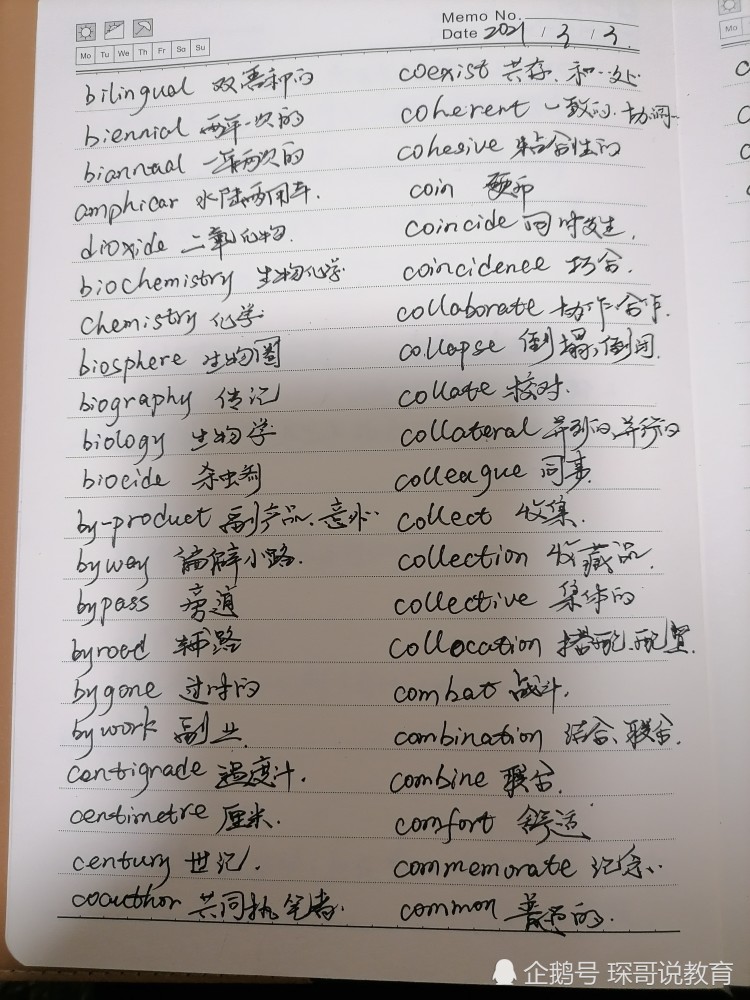 Memo No.
Date 2021 / 3 / 3
Mo Tu We Th Fr Sa Su
bilingual 双语种的
biennial 两年一次的
biannual 一年两次的
amphicar 水陆两用车.
dioxide 二氧化物.
biochemistry 生物化学
chemistry 化学
biosphere 生物圈
biography 传记
biology 生物学
biocide 杀虫剂
by-product 副产品、意外
byway 偏僻小路.
bypass 旁道
byroed 辅路
bygone 过时的
bywork 副业
centigrade 温度计.
centimetre 厘米.
century 世记.
coauthor 共同执笔者.
coexist 共存、和一处
coherent 一致的.协调
cohesive 粘合性的
coin 硬币
coincide 同时发生.
coincidence 巧合.
collaborate 协作.合作.
collapse 倒塌,倒闭.
collate 校对.
collateral 并列的,并行的
colleague 同事.
collect 收集.
collection 收藏品.
collective 集体的
collocation 搭配、配置.
combat 战斗.
combination 结合、联合.
combine 联合.
comfort 舒适
commemorate 纪念..
common 普通的.
Mo
企鹅号 琛哥说教育